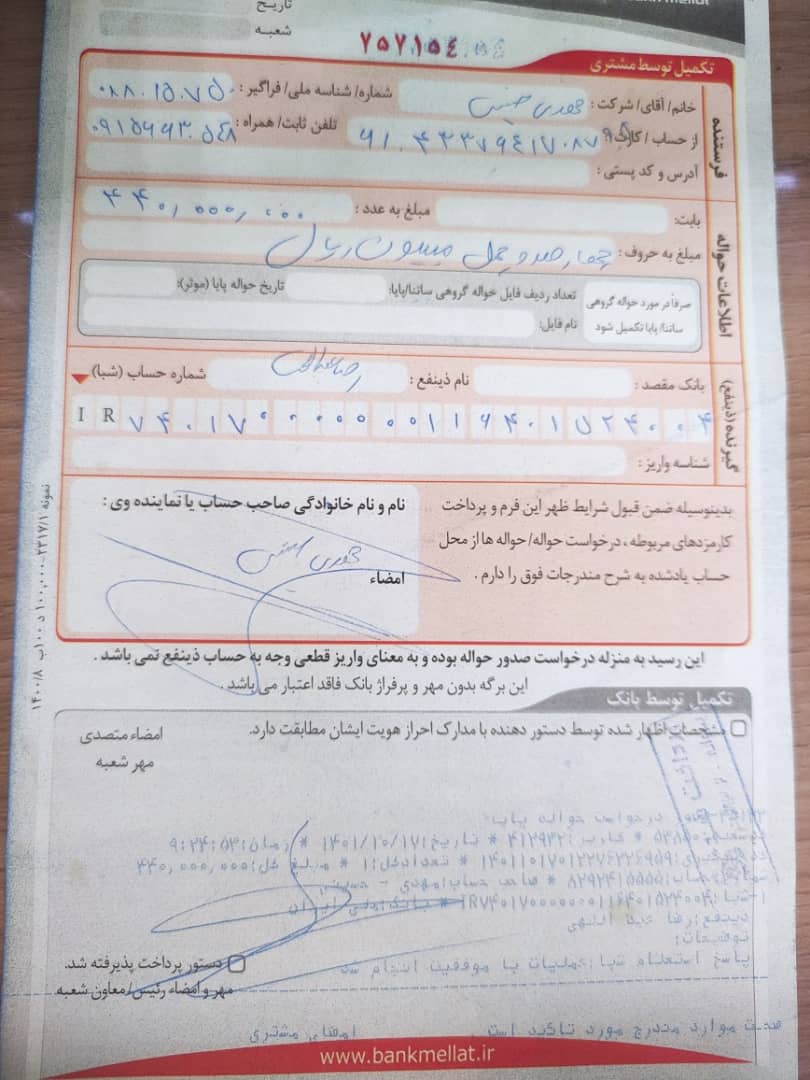 bank mellat
تاریخ
شعبه
۷۵۷۱۵۴
تکمیل توسط مشتری
فرستنده
خانم/ آقای/ شرکت: مهدی حسینی شماره/ شناسه ملی/ فراگیر: ۰۸۸۰۱۵۰۷۵۰
از حساب / کارت: تلفن ثابت/ همراه:
آدرس و کد پستی:
اطلاعات حواله
بابت: مبلغ به عدد: ۴۴۰,۰۰۰,۰۰۰
مبلغ به حروف: چهارصد و چهل میلیون ریال
صرفاً در مورد حواله گروهی ساتنا/ پایا تکمیل شود
تعداد ردیف فایل حواله گروهی ساتنا/پایا: تاریخ حواله پایا (موثر):
نام فایل:
گیرنده (ذینفع)
بانک مقصد: نام ذینفع: رضا عبداللهی شماره حساب (شبا)
IR ۷۴۰۱۷۰۰۰۰۰۰۰۱۱۶۴۰۱۵۲۴۰۰۴
شناسه واریز:
بدینوسیله ضمن قبول شرایط ظهر این فرم و پرداخت
کارمزدهای مربوطه، درخواست حواله/ حواله ها از محل
حساب یادشده به شرح مندرجات فوق را دارم.
نام و نام خانوادگی صاحب حساب یا نماینده وی:
مهدی حسینی
امضاء
این رسید به منزله درخواست صدور حواله بوده و به معنای واریز قطعی وجه به حساب ذینفع نمی باشد.
این برگه بدون مهر و پرفراژ بانک فاقد اعتبار می باشد.
تکمیل توسط بانک
مشخصات اظهار شده توسط دستور دهنده با مدارک احراز هویت ایشان مطابقت دارد.
امضاء متصدی
مهر شعبه
درخواست حواله پایا
کاربر: ۴۱۲۹۳۲ * تاریخ: ۱۴۰۱/۱۰/۱۷ * زمان: ۹:۲۴:۵۳
* تعدادکل: ۱ * مبلغ کل: ۴۴۰,۰۰۰,۰۰۰
۸۲۹۲۴۱۵۵۵۵ * صاحب حساب: مهدی - حسینی
۱-شبا: IR۷۴۰۱۷۰۰۰۰۰۰۰۱۱۶۴۰۱۵۲۴۰۰۴ * بانک: ملی ایران
ذینفع: رضا عبداللهی
توضیحات:
پاسخ استعلام شبا: عملیات با موفقیت انجام شد
دستور پرداخت پذیرفته شد.
مهر و امضاء رئیس/ معاون شعبه
صحت موارد مندرج مورد تاکید است. امضای مشتری
www.bankmellat.ir